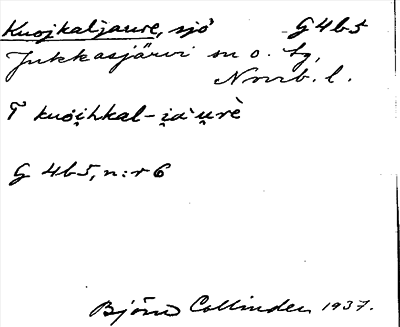 Kuojkaljaure, sjö G4b5
Jukkasjärvi sn o. tg,
Norrb. l.
T kuöi̯hkal-i̯àu̯rè
G 4b5, n:r 6
Björn Collinder 1937.